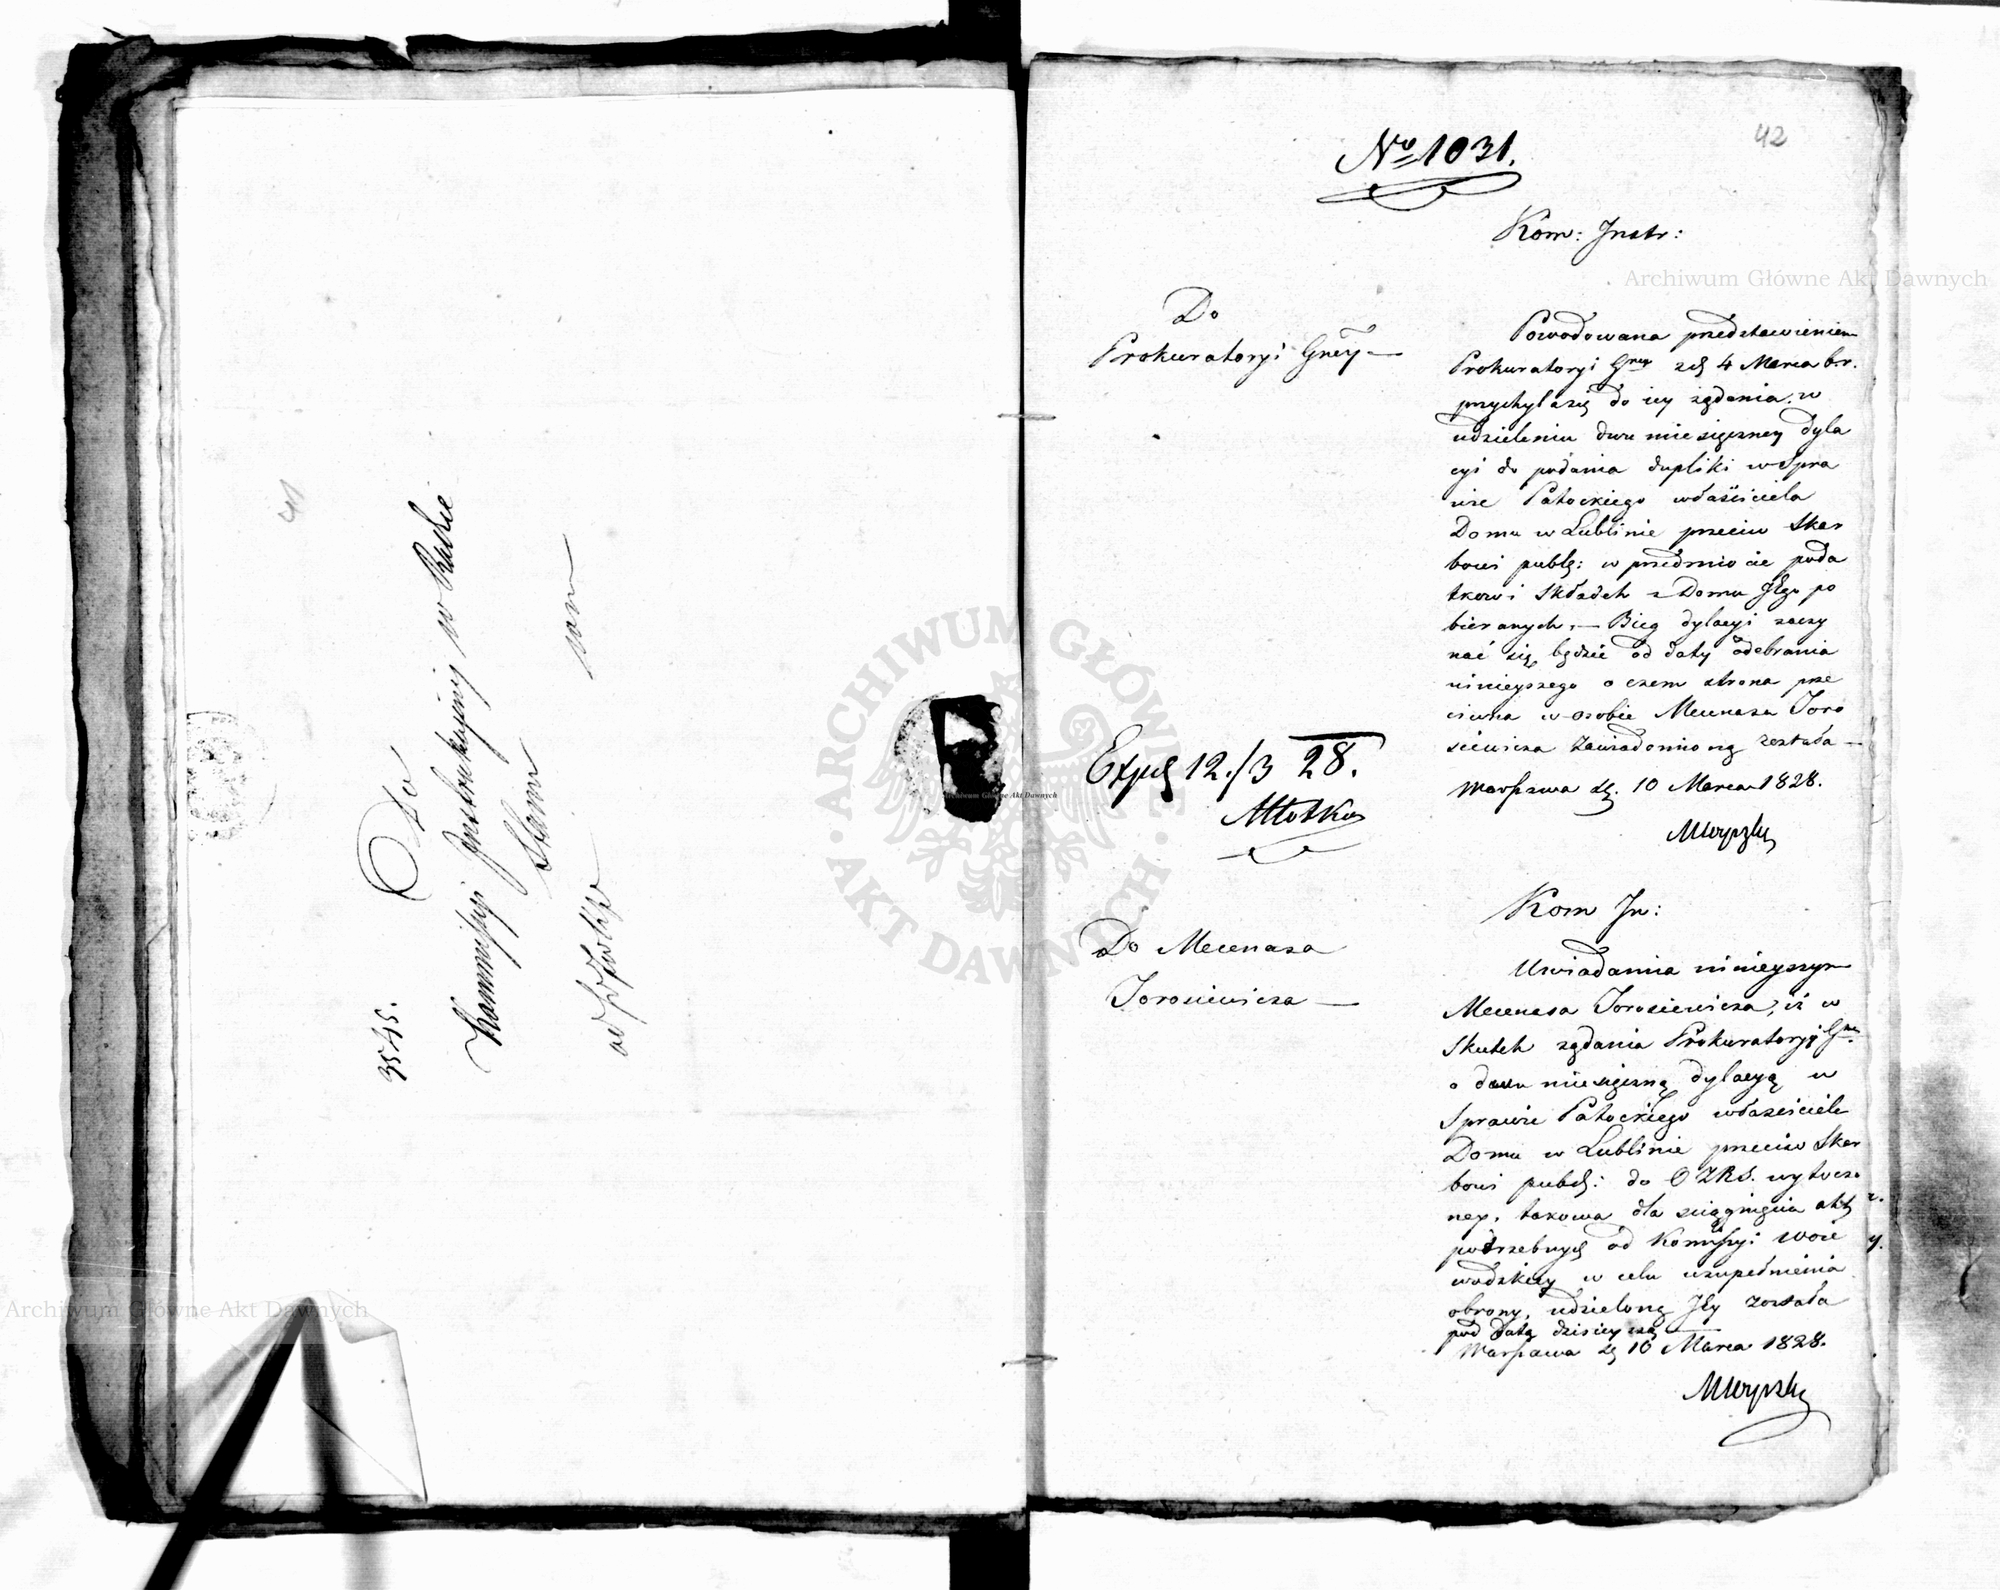 41
3545.
Do
Kommissyi Instrukcyiny w Radzie
Stanu
42
No 1031.
Kom: Instr:
Do
Prokuratoryi Gney —
Powodowana przedstawieniem
Prokuratoryi Gney z d. 4 Marca b.r.
przychyla się do iey żądania w
udzieleniu dwu miesięczney dyla
cyi do podania dupliki w Spra
wie Patockiego właściciela
Domu w Lublinie przeciw Skar
bowi publ: w przedmiocie poda
tkow i Składek z Domu Jego po
bieranych. — Bieg dylacyi zaczy
nać się będzie od daty odebrania
ninieyszego o czem strona prze
ciwna w osobie Mecenasa Toro
siewicza zawiadomioną została —
Warszawa d. 10 Marca 1828.
Exped 12./3 28.
Kom In:
Do Mecenasa
Torosiewicza —
Uwiadamia ninieyszym
Mecenasa Torosiewicza, iż w
Skutek żądania Prokuratoryi Gney
o dwu miesięczną dylacyą w
Sprawie Patockiego właściciela
Domu w Lublinie przeciw Skar
bowi publ: do OZRS. wytoczo
ney, takowa dla ściągnięcia akt
potrzebnych od Kommissyi Woie
wodzkiey w celu uzupełnienia
obrony, udzieloną Jey została
pod datą dzisieyszą
Warszawa d. 10 Marca 1828.
Archiwum Główne Akt Dawnych